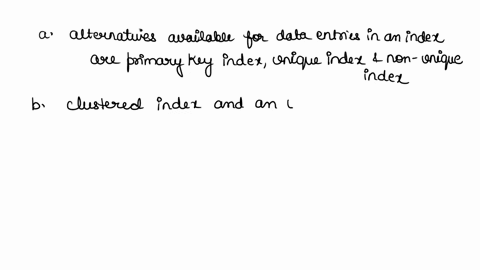 a. alternatives available for data entries in an index
are primary key index, unique index & non-unique
index
b. clustered index and an